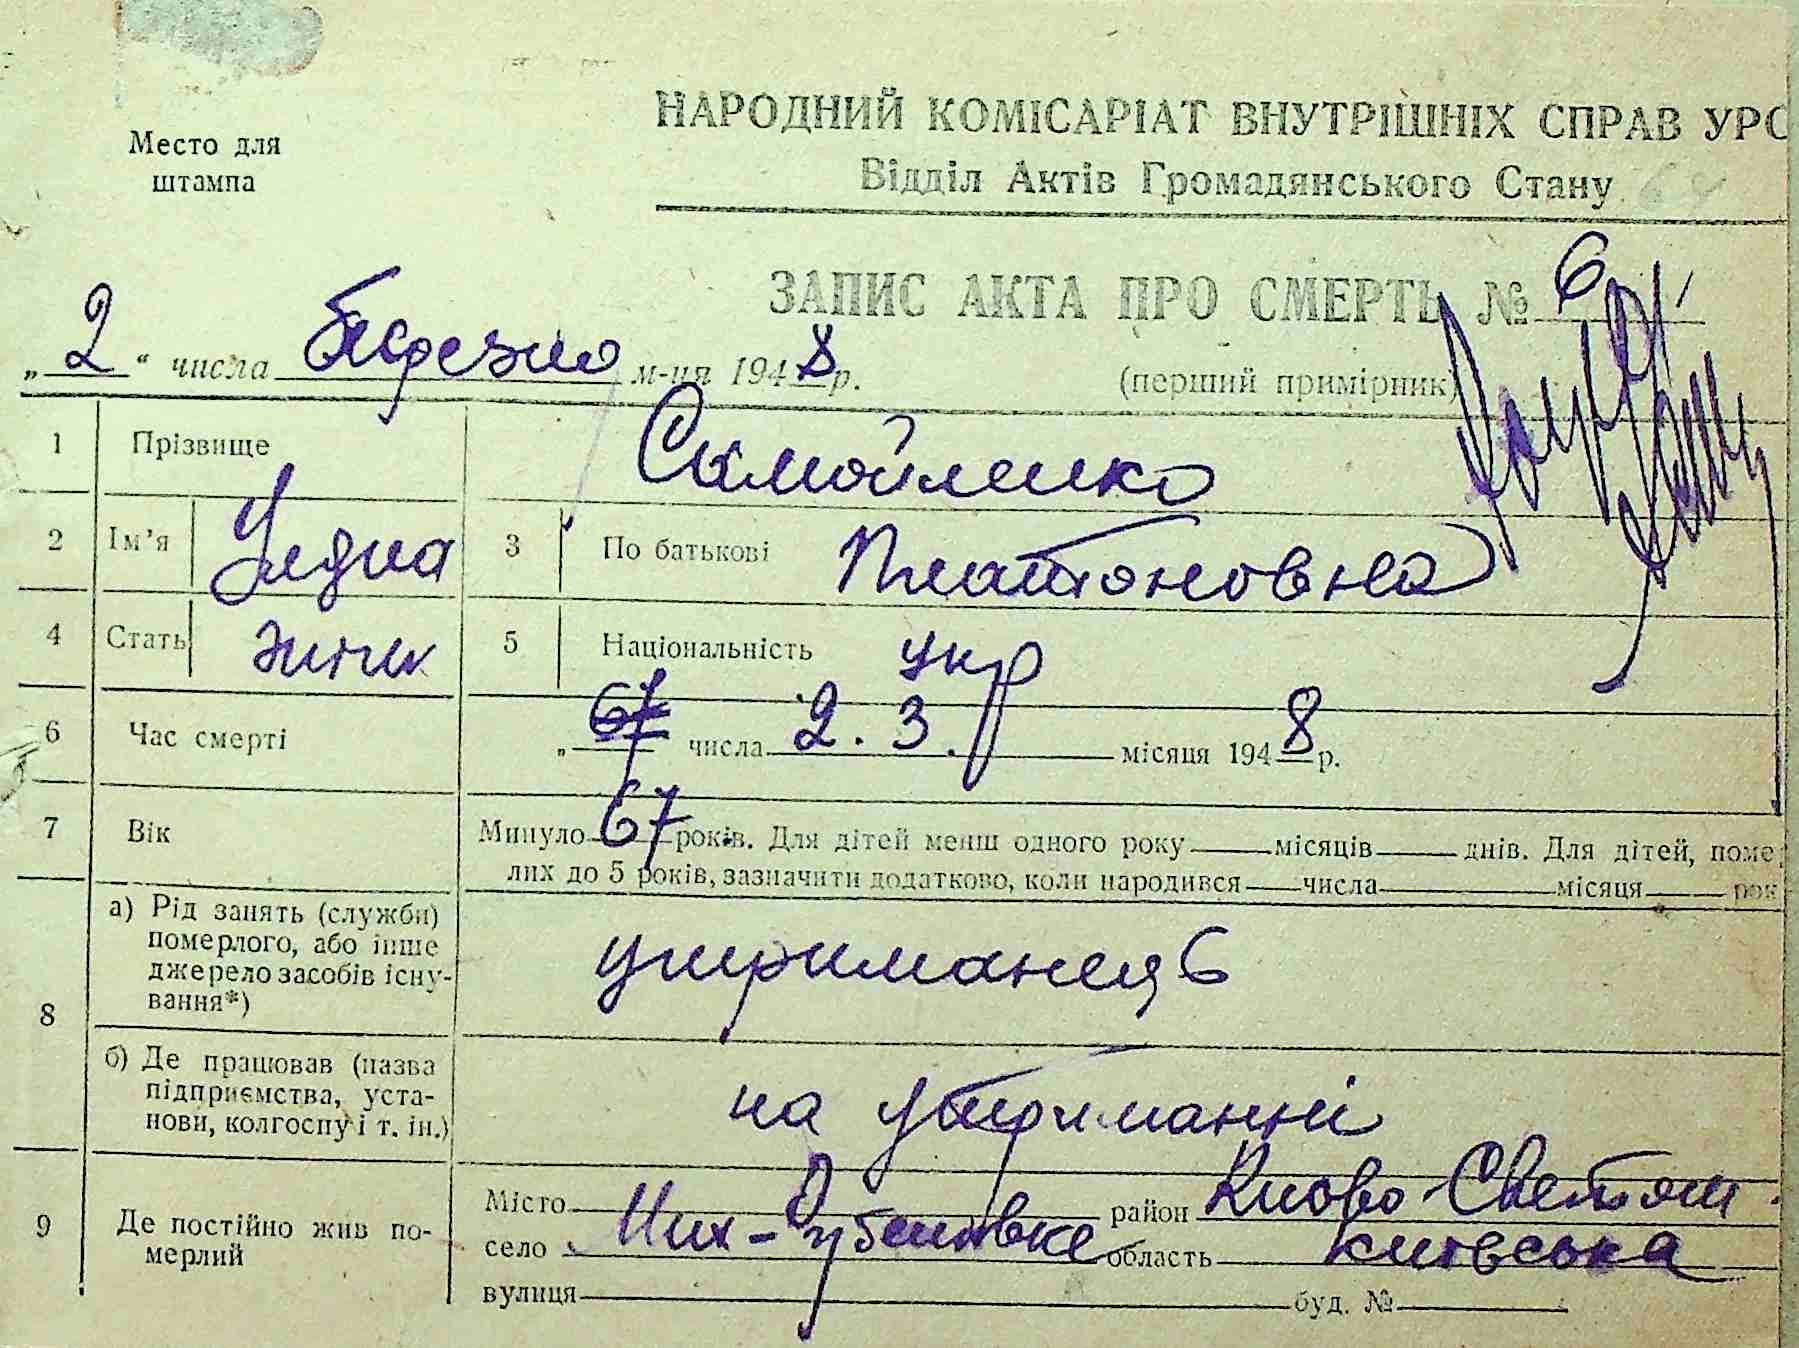 НАРОДНИЙ КОМІСАРІАТ ВНУТРІШНІХ СПРАВ УРС
Место для штампа
Відділ Актів Громадянського Стану
ЗАПИС АКТА ПРО СМЕРТЬ № 6
„2“ числа березня м-ця 1948 р. (перший примірник)
1 Прізвище Самойленко
2 Ім'я 3 По батькові Платоновна
4 Стать жінк 5 Національність укр
6 Час смерті „67 числа 2. 3. місяця 1948 р.
7 Вік Минуло 67 років. Для дітей менш одного року місяців днів. Для дітей, поме
лих до 5 років, зазначити додатково, коли народився числа місяця рок
8 а) Рід занять (служби)
померлого, або інше
джерело засобів існу-
вання*)
б) Де працював (назва
підприємства, уста-
нови, колгоспу і т. ін.)
на утриманні
9 Де постійно жив по-
мерлий
Місто район Києво-Святош.
село область Київська
вулиця буд. №